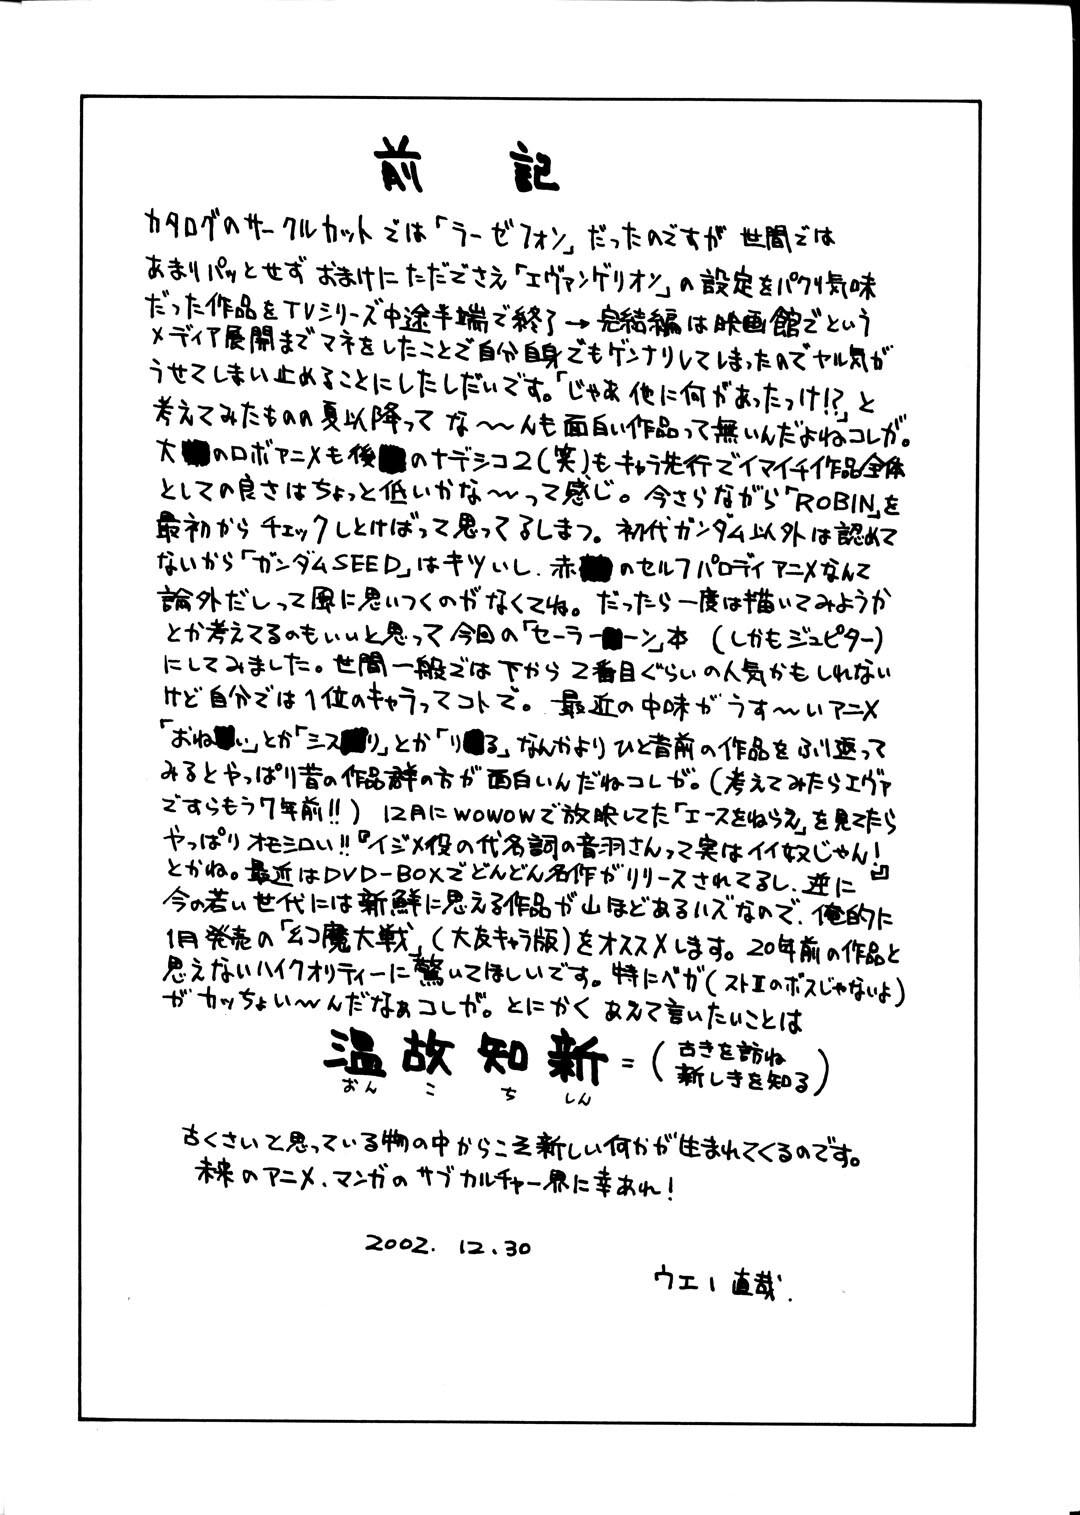 前記
カタログのサークルカットでは「ラーゼフォン」だったのですが世間では
あまりパッとせずおまけにただでさえ「エヴァンゲリオン」の設定をパクリ気味
だった作品をTVシリーズ中途半端で終了→完結編は映画館でという
メディア展開までマネをしたことで自分自身でもゲンナリしてしまったのでヤル気が
うせてしまい止めることにしたしだいです。「じゃあ他に何があったっけ!?」と
考えてみたものの夏以降ってな〜〜んも面白い作品って無いんだよねコレが。
大のロボアニメも後のナデシコ2(笑)もキャラ先行でイマイチ作品全体
としての良さはちょっと低いかな〜〜って感じ。今さらながら「ROBIN」を
最初からチェックしとけばって思ってるしまつ。初代ガンダム以外は認めて
ないから「ガンダムSEED」はキツいし、赤のセルフパロディアニメなんて
論外だしって風に思いつくのがなくてね。だったら一度は描いてみようか
とか考えてるのもいいと思って今回の「セーラーーン」本(しかもジュピター)
にしてみました。世間一般では下から2番目ぐらいの人気かもしれない
けど自分では1位のキャラってコトで。最近の中味がうす〜〜いアニメ
「おねい」とか「シスリ」とか「りる」なんかよりひと昔前の作品をふり返って
みるとやっぱり昔の作品群の方が面白いんだねコレが。(考えてみたらエヴァ
ですらもう7年前!!)12月にWOWOWで放映してた「エースをねらえ」を見てたら
やっぱりオモシロい!!『イジメ役の代名詞の音羽さんって実はイイ奴じゃん!』
とかね。最近はDVD-BOXでどんどん名作がリリースされてるし、逆に
今の若い世代には新鮮に思える作品が山ほどあるハズなので、俺的に
1月発売の「幻魔大戦」(大友キャラ版)をオススメします。20年前の作品と
思えないハイクオリティーに驚いてほしいです。特にベガ(ストIIのボスじゃないよ)
がカッちょい〜〜んだなぁコレが。とにかくあえて言いたいことは
温故知新=(古きを訪ね新しきを知る)
おんこちしん
古くさいと思っている物の中からこそ新しい何かが生まれてくるのです。
未来のアニメ、マンガのサブカルチャー界に幸あれ!
2002.12.30
ウエー直哉.